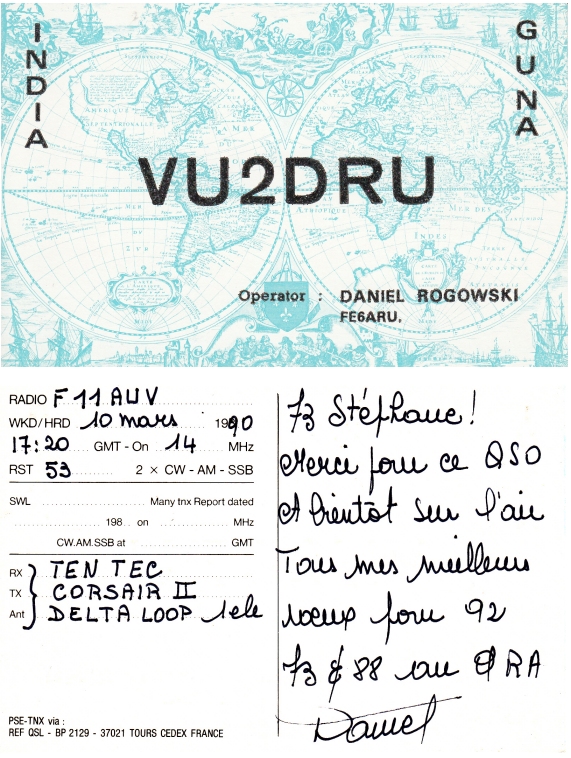 INDIA
GUNA
VU2DRU
Operator : DANIEL ROGOWSKI
FE6ARU.
RADIO F 11 AUV
WKD/HRD 10 mars 1990
17:20 GMT - On 14 MHz
RST 53 2 × CW - AM - SSB
SWL Many tnx Report dated
198 on MHz
CW.AM.SSB at GMT
RX } TEN TEC
TX CORSAIR II
Ant DELTA LOOP 1 ele
PSE-TNX via :
REF QSL - BP 2129 - 37021 TOURS CEDEX FRANCE
73 Stéphane !
Merci pour ce QSO
A bientôt sur l'air
Tous mes meilleurs
vœux pour 92
73 & 88 au QRA
Daniel